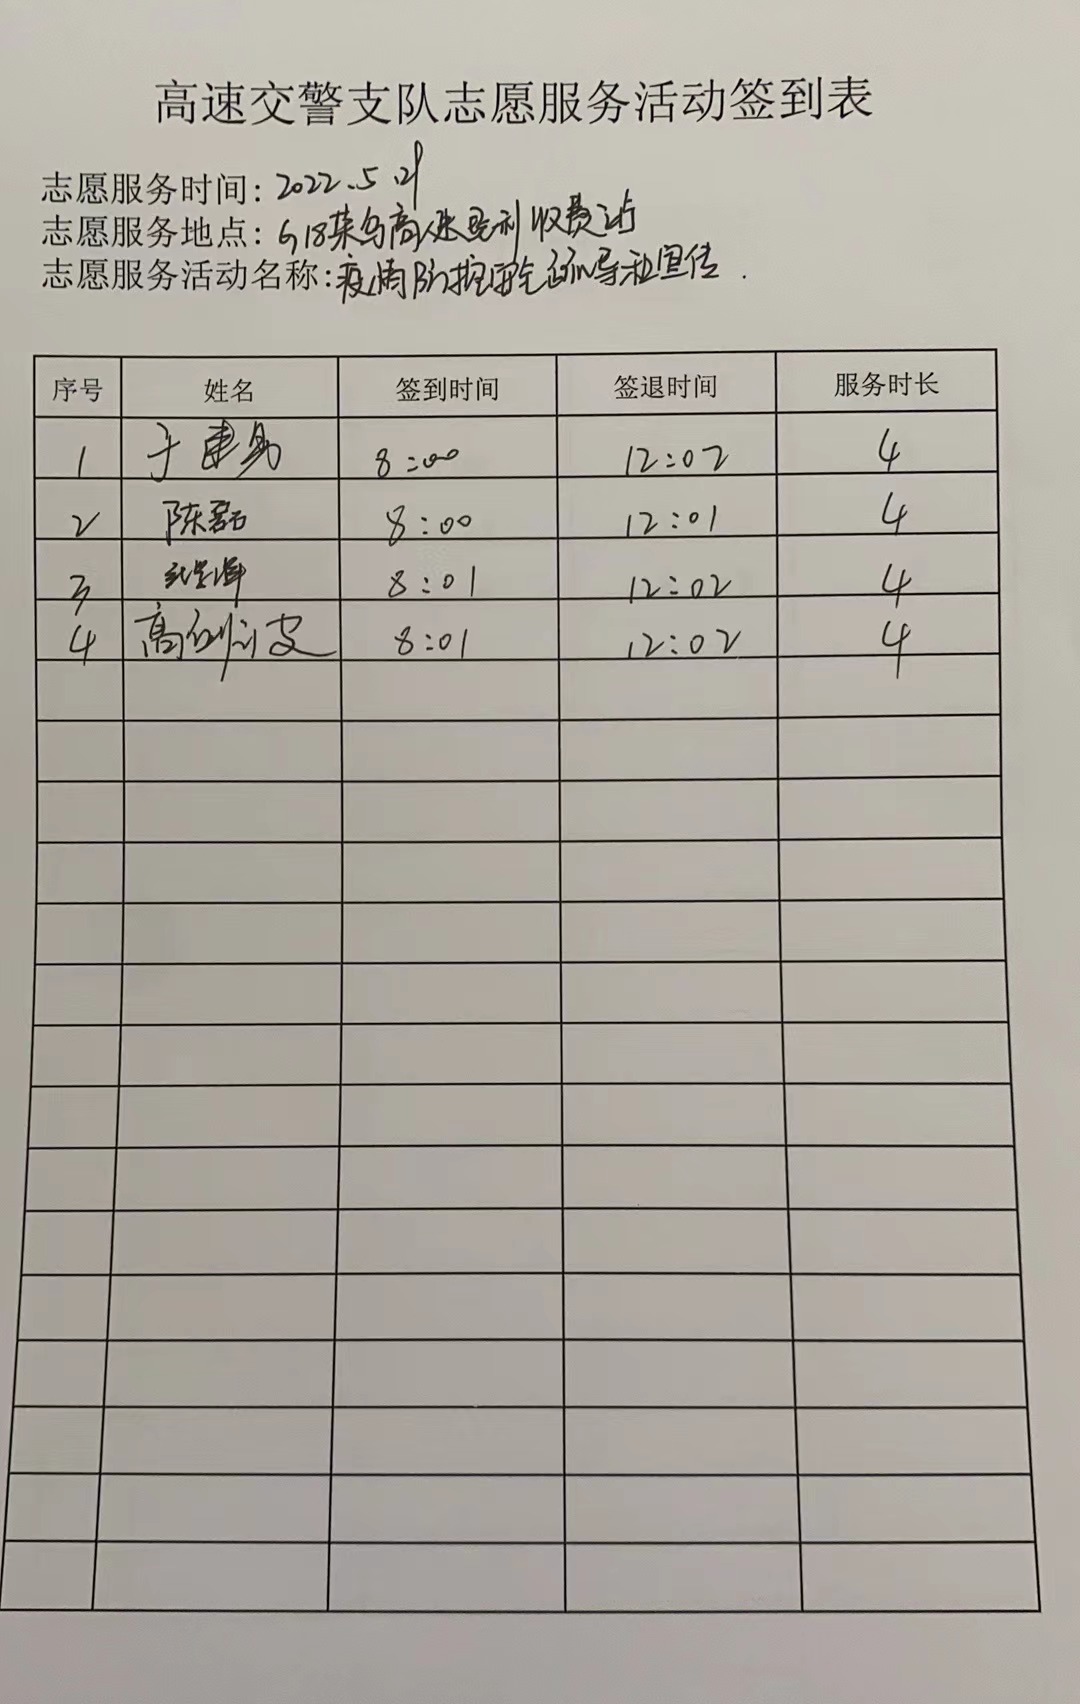 高速交警支队志愿服务活动签到表
志愿服务时间：2022.5.21
志愿服务地点：G18荣乌高速垦利收费站
志愿服务活动名称：疫情防控安全疏导和宣传.
序号 姓名 签到时间 签退时间 服务时长
1 于 8:00 12:02 4
2 陈磊 8:00 12:01 4
3 8:01 12:02 4
4 高 8:01 12:02 4